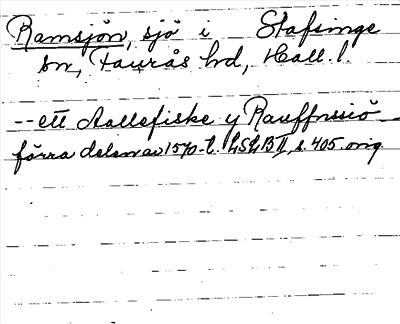 Ramsjön, sjö i Stafsinge
sn, Faurås hd, Hall. l.
-- ett Aallefiske y Rauffnssiö
förra delen av 1570-t. LSLB II, s. 405. orig.